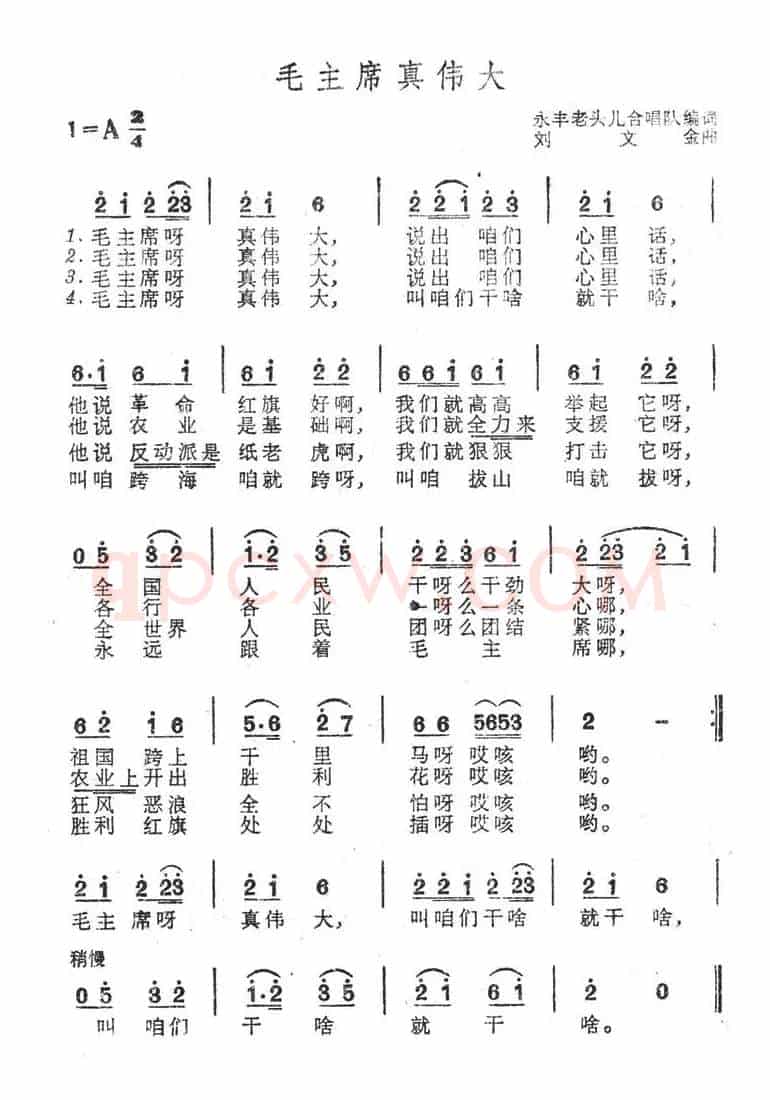 毛主席真伟大
1=A 2/4
永丰老头儿合唱队编词
刘文金曲
2 1 2 23 | 2 1 6 | 2 2 1 2 3 | 2 1 6 |
1. 毛主席呀 真伟大, 说出咱们 心里话,
2. 毛主席呀 真伟大, 说出咱们 心里话,
3. 毛主席呀 真伟大, 说出咱们 心里话,
4. 毛主席呀 真伟大, 叫咱们干啥 就干啥,
6·1 6 1 | 6 1 2 2 | 6 6 1 6 1 | 6 1 2 2 |
他说革命 红旗好啊, 我们就高高 举起它呀,
他说农业 是基础啊, 我们就全力来 支援它呀,
他说反动派是 纸老虎啊, 我们就狠狠 打击它呀,
叫咱跨海 咱就跨呀, 叫咱拔山 咱就拔呀,
0 5 3 2 | 1·2 3 5 | 2 2 3 6 1 | 2 23 2 1 |
全国人民 干呀么干劲 大呀,
各行各业 一呀么一条 心哪,
全世界人民 团呀么团结 紧哪,
永远跟着 毛主席哪,
qpcxw.com
6 2 1 6 | 5·6 2 7 | 6 6 5653 | 2 - :|
祖国跨上 千里马呀哎咳 哟。
农业上开出 胜利花呀哎咳 哟。
狂风恶浪 全不怕呀哎咳 哟。
胜利红旗 处处插呀哎咳 哟。
2 1 2 23 | 2 1 6 | 2 2 1 2 23 | 2 1 6 |
毛主席呀 真伟大, 叫咱们干啥 就干啥,
稍慢
0 5 3 2 | 1·2 3 5 | 2 1 6 1 | 2 0 ‖
叫咱们干啥就干啥。